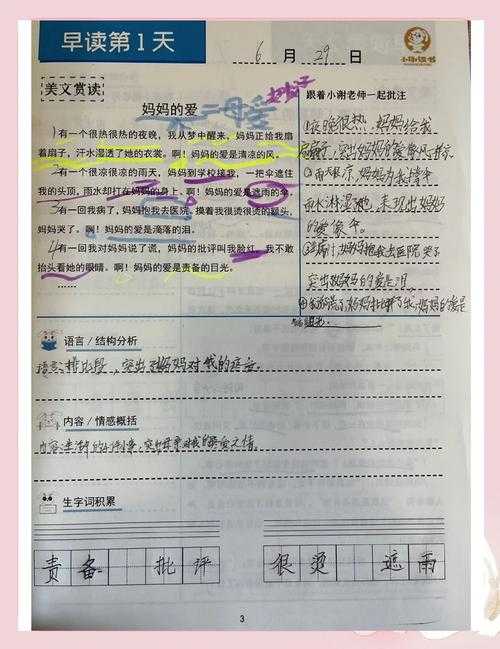 早读第1天
6月29日
小谢读书
美文赏读
妈妈的爱
母爱
跟着小谢老师一起批注
1有一个很热很热的夜晚，我从梦中醒来，妈妈正给我扇
着扇子，汗水湿透了她的衣裳。啊！妈妈的爱是清凉的风。
2有一个很凉很凉的雨天，妈妈到学校接我，一把伞遮住
我的头顶，雨水却打在妈妈的身上。啊！妈妈的爱是遮雨的伞。
3有一回我病了，妈妈抱我去医院。摸着我很烫很烫的额头，
妈妈哭了。啊！妈妈的爱是滴落的泪。
4有一回我对妈妈说了谎，妈妈的批评叫我脸红，我不敢
抬头看她的眼睛。啊！妈妈的爱是责备的目光。
……
①夜晚很热，妈妈给我
扇扇子，突出妈妈的爱像风
②雨天很凉，妈妈为我撑伞
雨水淋湿她，表现出妈妈
的爱象伞。
妈妈抱我去医院哭了
突出妈妈的爱是泪
④妈妈的爱是
目光。
语言/结构分析
语言：排比段，突出了妈妈对我的
内容/情感概括
内容：
生字词积累
责备 批评 很烫 遮雨
3